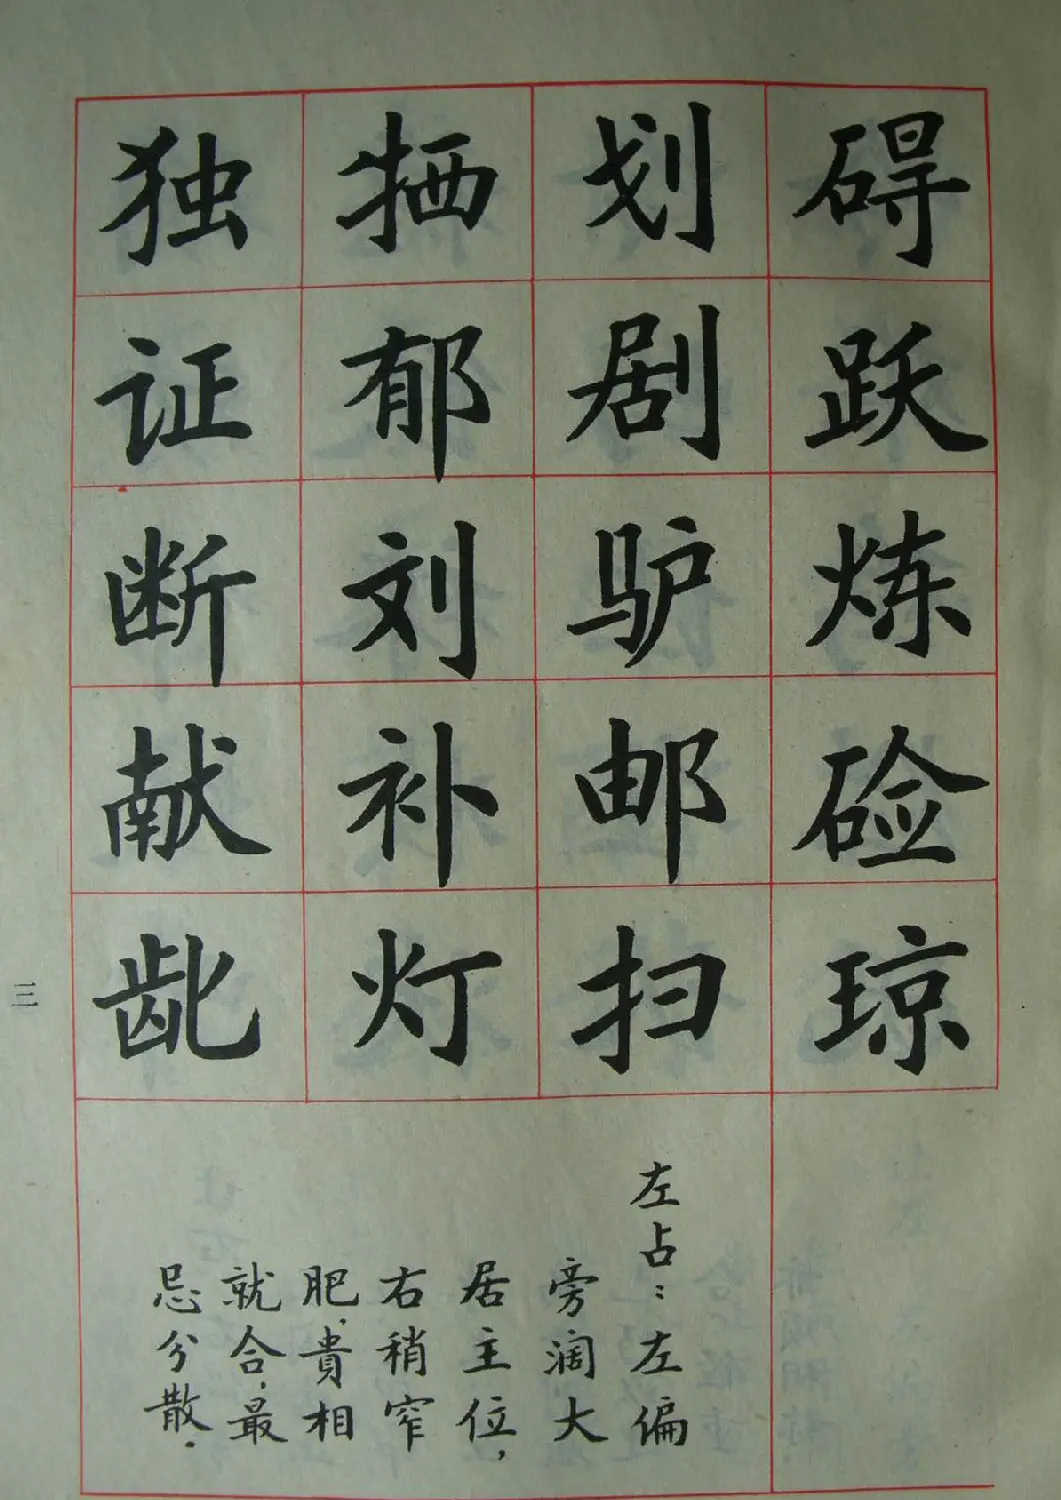 碍跃炼硷琼
划剧驴邮扫
牺郁刘补灯
独证断献龀
左占：左偏
旁阔大
居主位，
右稍窄
肥，貴相
就合，最
忌分散．
三